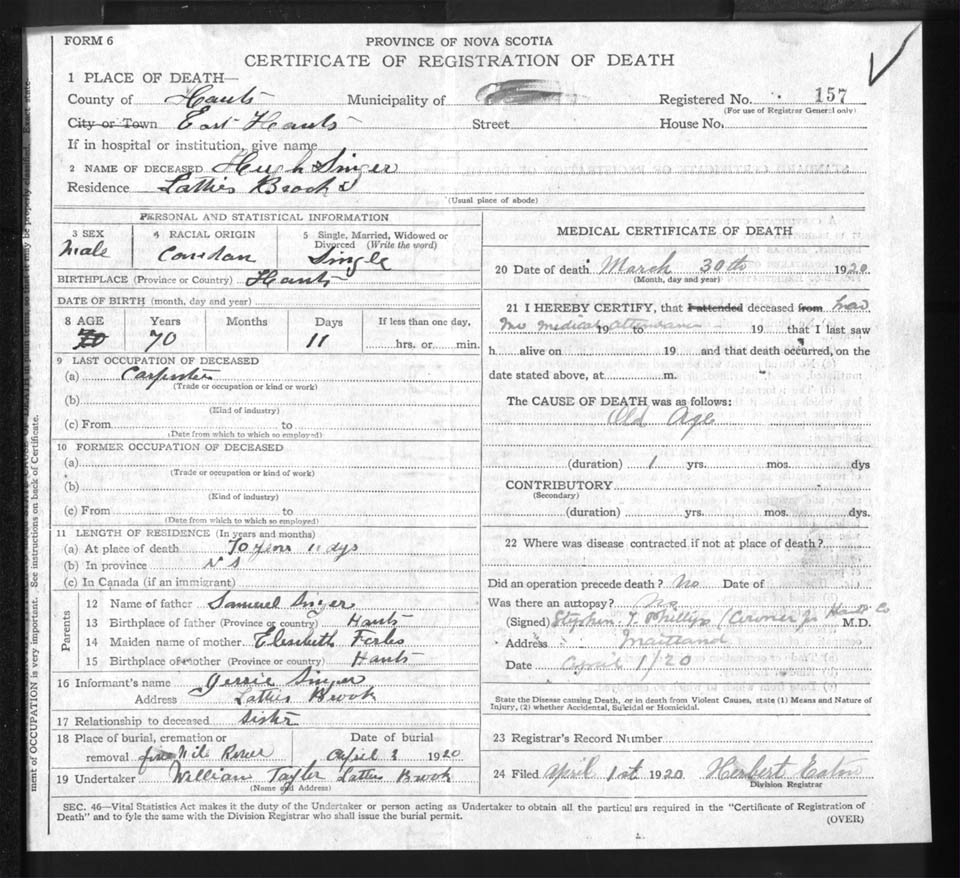 FORM 6
PROVINCE OF NOVA SCOTIA
CERTIFICATE OF REGISTRATION OF DEATH
1 PLACE OF DEATH—
County of Hants Municipality of Registered No. 157
(For use of Registrar General only)
City or Town East Hants Street House No.
If in hospital or institution, give name
2 NAME OF DECEASED Hugh Singer
Residence Latties Brook
(Usual place of abode)
PERSONAL AND STATISTICAL INFORMATION
3 SEX 4 RACIAL ORIGIN 5 Single, Married, Widowed or
Divorced (Write the word)
Male Single
BIRTHPLACE (Province or Country) Hants
DATE OF BIRTH (month, day and year)
8 AGE Years Months Days If less than one day,
70 70 11 hrs. or min.
9 LAST OCCUPATION OF DECEASED
(a) Carpenter
(Trade or occupation or kind or work)
(b)
(Kind of industry)
(c) From to
(Date from which to which so employed)
10 FORMER OCCUPATION OF DECEASED
(a)
(Trade or occupation or kind of work)
(b)
(Kind of industry)
(c) From to
(Date from which to which so employed)
11 LENGTH OF RESIDENCE (In years and months)
(a) At place of death 70 years 11 dys
(b) In province N S
(c) In Canada (if an immigrant)
Parents
12 Name of father Samuel Singer
13 Birthplace of father (Province or country) Hants
14 Maiden name of mother Elisabeth
15 Birthplace of mother (Province or country) Hants
16 Informant's name Singer
Address Latties Brook
17 Relationship to deceased Sister
18 Place of burial, cremation or Date of burial
removal five Mile River April 3 1920
19 Undertaker William Taylor Latties Brook
(Name and Address)
MEDICAL CERTIFICATE OF DEATH
20 Date of death March 30th 1920
(Month, day and year)
21 I HEREBY CERTIFY, that I attended deceased from had
no medical attendance 19 to 19 that I last saw
h alive on 19 and that death occurred, on the
date stated above, at m.
The CAUSE OF DEATH was as follows:
Old Age
(duration) 1 yrs. mos. dys
CONTRIBUTORY
(Secondary)
(duration) yrs. mos. dys.
22 Where was disease contracted if not at place of death?
Did an operation precede death? No Date of
Was there an autopsy? No
(Signed) Stephen Y. Phillips (Coroner for Hants Co M.D.
Address Maitland
Date April 1/20
State the Disease causing Death, or in death from Violent Causes, state (1) Means and Nature of
Injury, (2) whether Accidental, Suicidal or Homicidal.
23 Registrar's Record Number
24 Filed April 1st 1920 Herbert Eaton
Division Registrar
SEC. 46—Vital Statistics Act makes it the duty of the Undertaker or person acting as Undertaker to obtain all the particulars required in the "Certificate of Registration of
Death" and to fyle the same with the Division Registrar who shall issue the burial permit.
(OVER)
ment of OCCUPATION is very important. See instructions on back of Certificate.